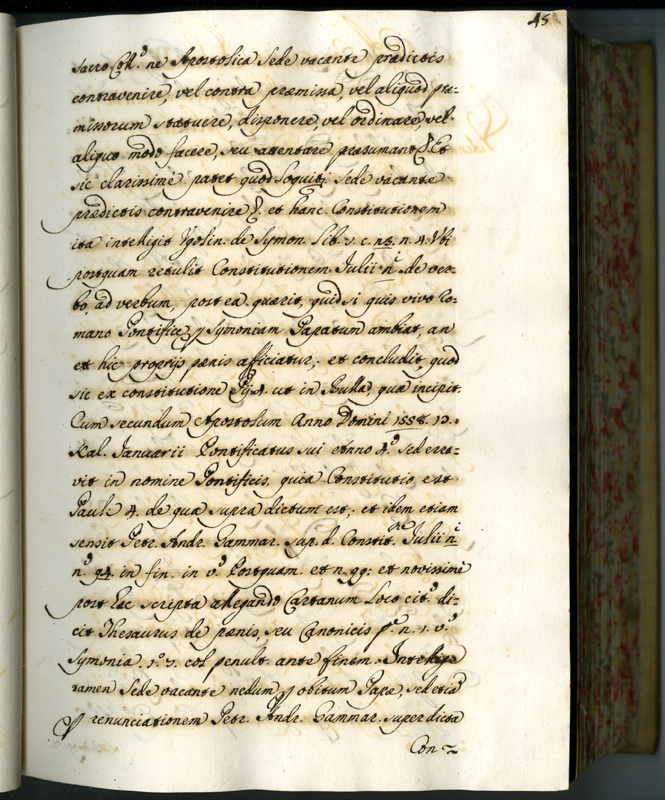 45
sacro Coll.º ne Apostolica Sede vacante prædictis
contravenire, vel contra præmissa, vel aliquod præ-
missorum statuere, disponere, vel ordinare, vel
aliquo modo facere, seu attentare præsumant &. Et
sic clarissime patet quod loquitr. Sede vacante
prædictis contravenire &. et hanc Constitutionem
ita intelligit Ugolin. de Symon. Lib. 1. c. n. 4. Ubi
postquam retulit Constitutionem Julii ii de ver-
bo, ad verbum, post ea quærit, quid si quis vivo Ro-
mano Pontifice p Symoniam Papatum ambiat, an
et hic proprijs pænis afficiatur; et concludit, quod
sic ex constitutione Pij 4. ut in Bulla, quæ incipit.
Cum secundum Apostolum Anno Domini 1558. 17.
Kal. Januarii Pontificatus sui Anno 4.º sed erra-
vit in nomine Pontificis, quia Constitutio est
Pauli 4. de qua supra dictum est; et idem etiam
sensit Petr. Andr. Gammar. sup. d. Constit.ne Julii ii
n.º 94 in fin. in v.º Postquam. et n. 99; et novissimi
post hæc scripta allegando Cartanum Loco cit.º di-
cit Thesaurus de pænis, seu Canonicis p.ª n. 1. v.º
Symonia. 1.º 7. col penult. ante finem. Intellige
tamen Sede vacante nedum p obitum Papæ, sed etiā
p renunciationem Petr. Andr. Gammar. super dicta
Con